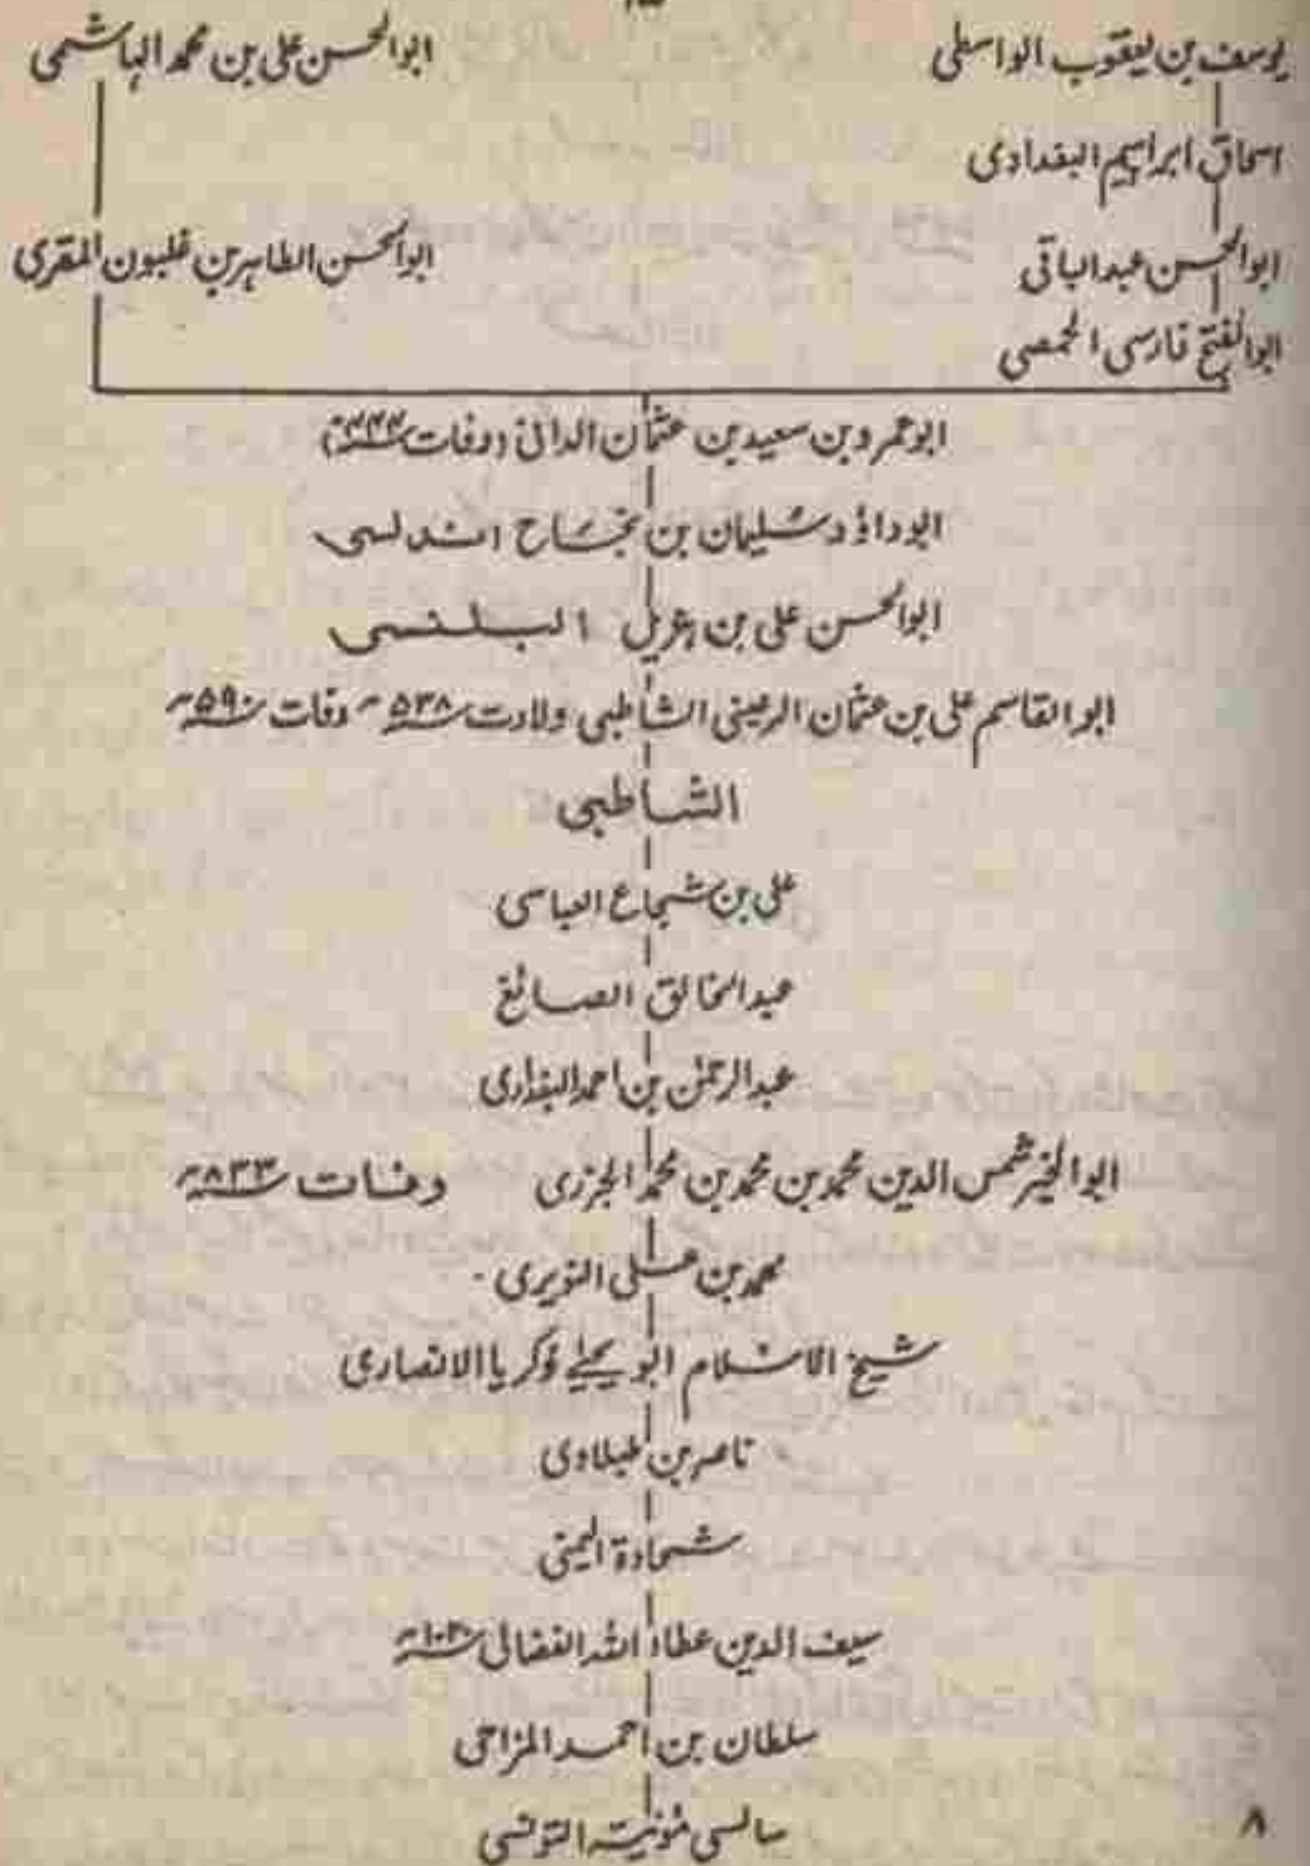 یوسف بن یعقوب الواسطی
ابوالحسن علی بن محمد الہاشمی
اسحاق ابراہیم البغدادی
ابوالحسن عبدالباقی
ابوالحسن الطاہر بن غلبون المقری
ابوالفتح فارسی الحمصی
ابو عمرو بن سعید بن عثمان الدانی (وفات ۴۴۴ھ)
ابوداؤد سلیمان بن نجاح اندلسی
ابوالحسن علی بن ہذیل البلنسی
ابوالقاسم علی بن عثمان الرعینی الشاطبی ولادت ۵۳۸ھ وفات ۵۹۰ھ
الشاطبی
علی بن شجاع العباسی
عبدالخالق الصائغ
عبدالرحمٰن بن احمد البغدادی
ابوالخیر شمس الدین محمد بن محمد بن محمد الجزری وفات ۸۳۳ھ
محمد بن علی النویری
شیخ الاسلام ابو یحییٰ زکریا الانصاری
ناصر بن طبلاوی
شحادۃ الیمنی
سیف الدین عطاء اللہ الفضالی ۱۰۲۰ھ
سلطان بن احمد المزاحی
التونسی
۸